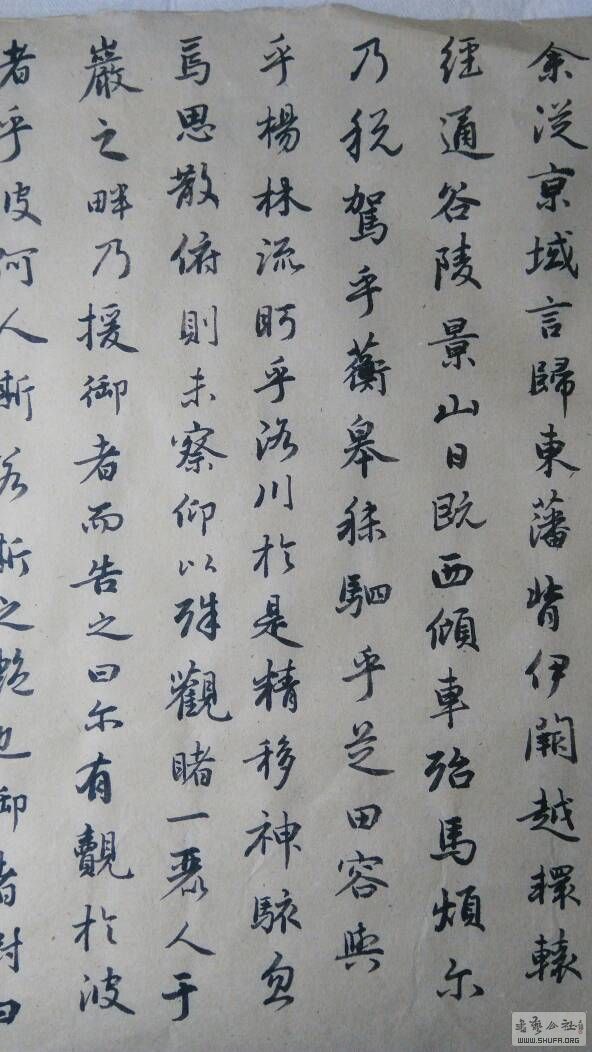 余從京域言歸東藩背伊闕越轘轅
經通谷陵景山日既西傾車殆馬煩尔
乃税駕乎蘅皋秣駟乎芝田容與
乎楊林流眄乎洛川於是精移神駭忽
焉思散俯則未察仰以殊觀睹一麗人于
巖之畔乃援御者而告之曰尔有覿於彼
者乎彼何人斯若斯之艷也御者對曰
WWW.SHUFA.ORG